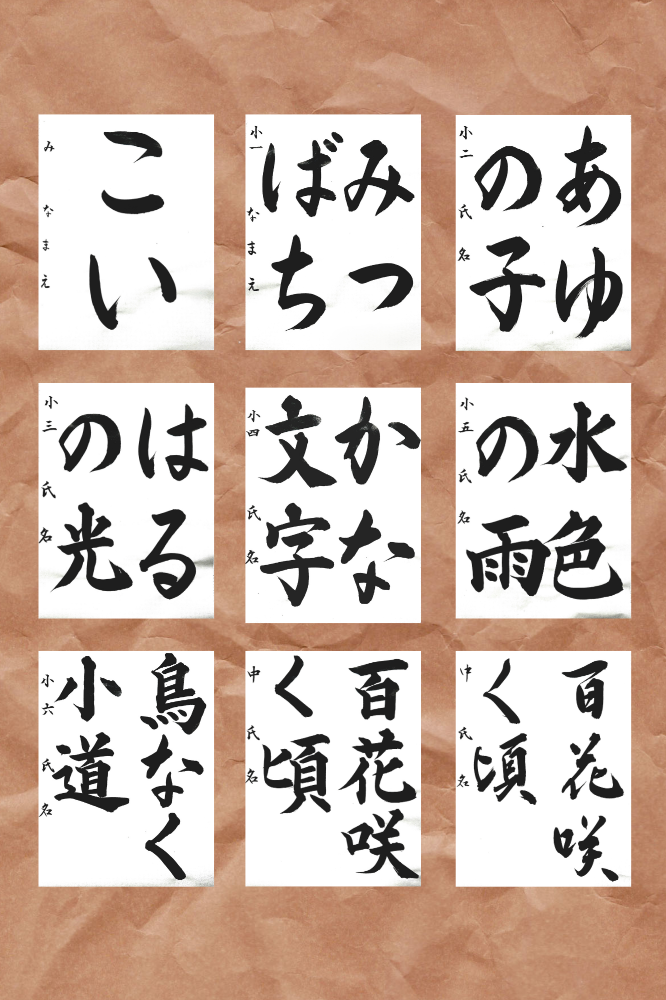 こい
み なまえ
みつ
ばち
小一 なまえ
あゆ
の子
小二 氏名
はる
の光
小三 氏名
かな
文字
小四 氏名
水色
の雨
小五 氏名
鳥なく
小道
小六 氏名
百花咲
く頃
中 氏名
百花咲
く頃
中 氏名